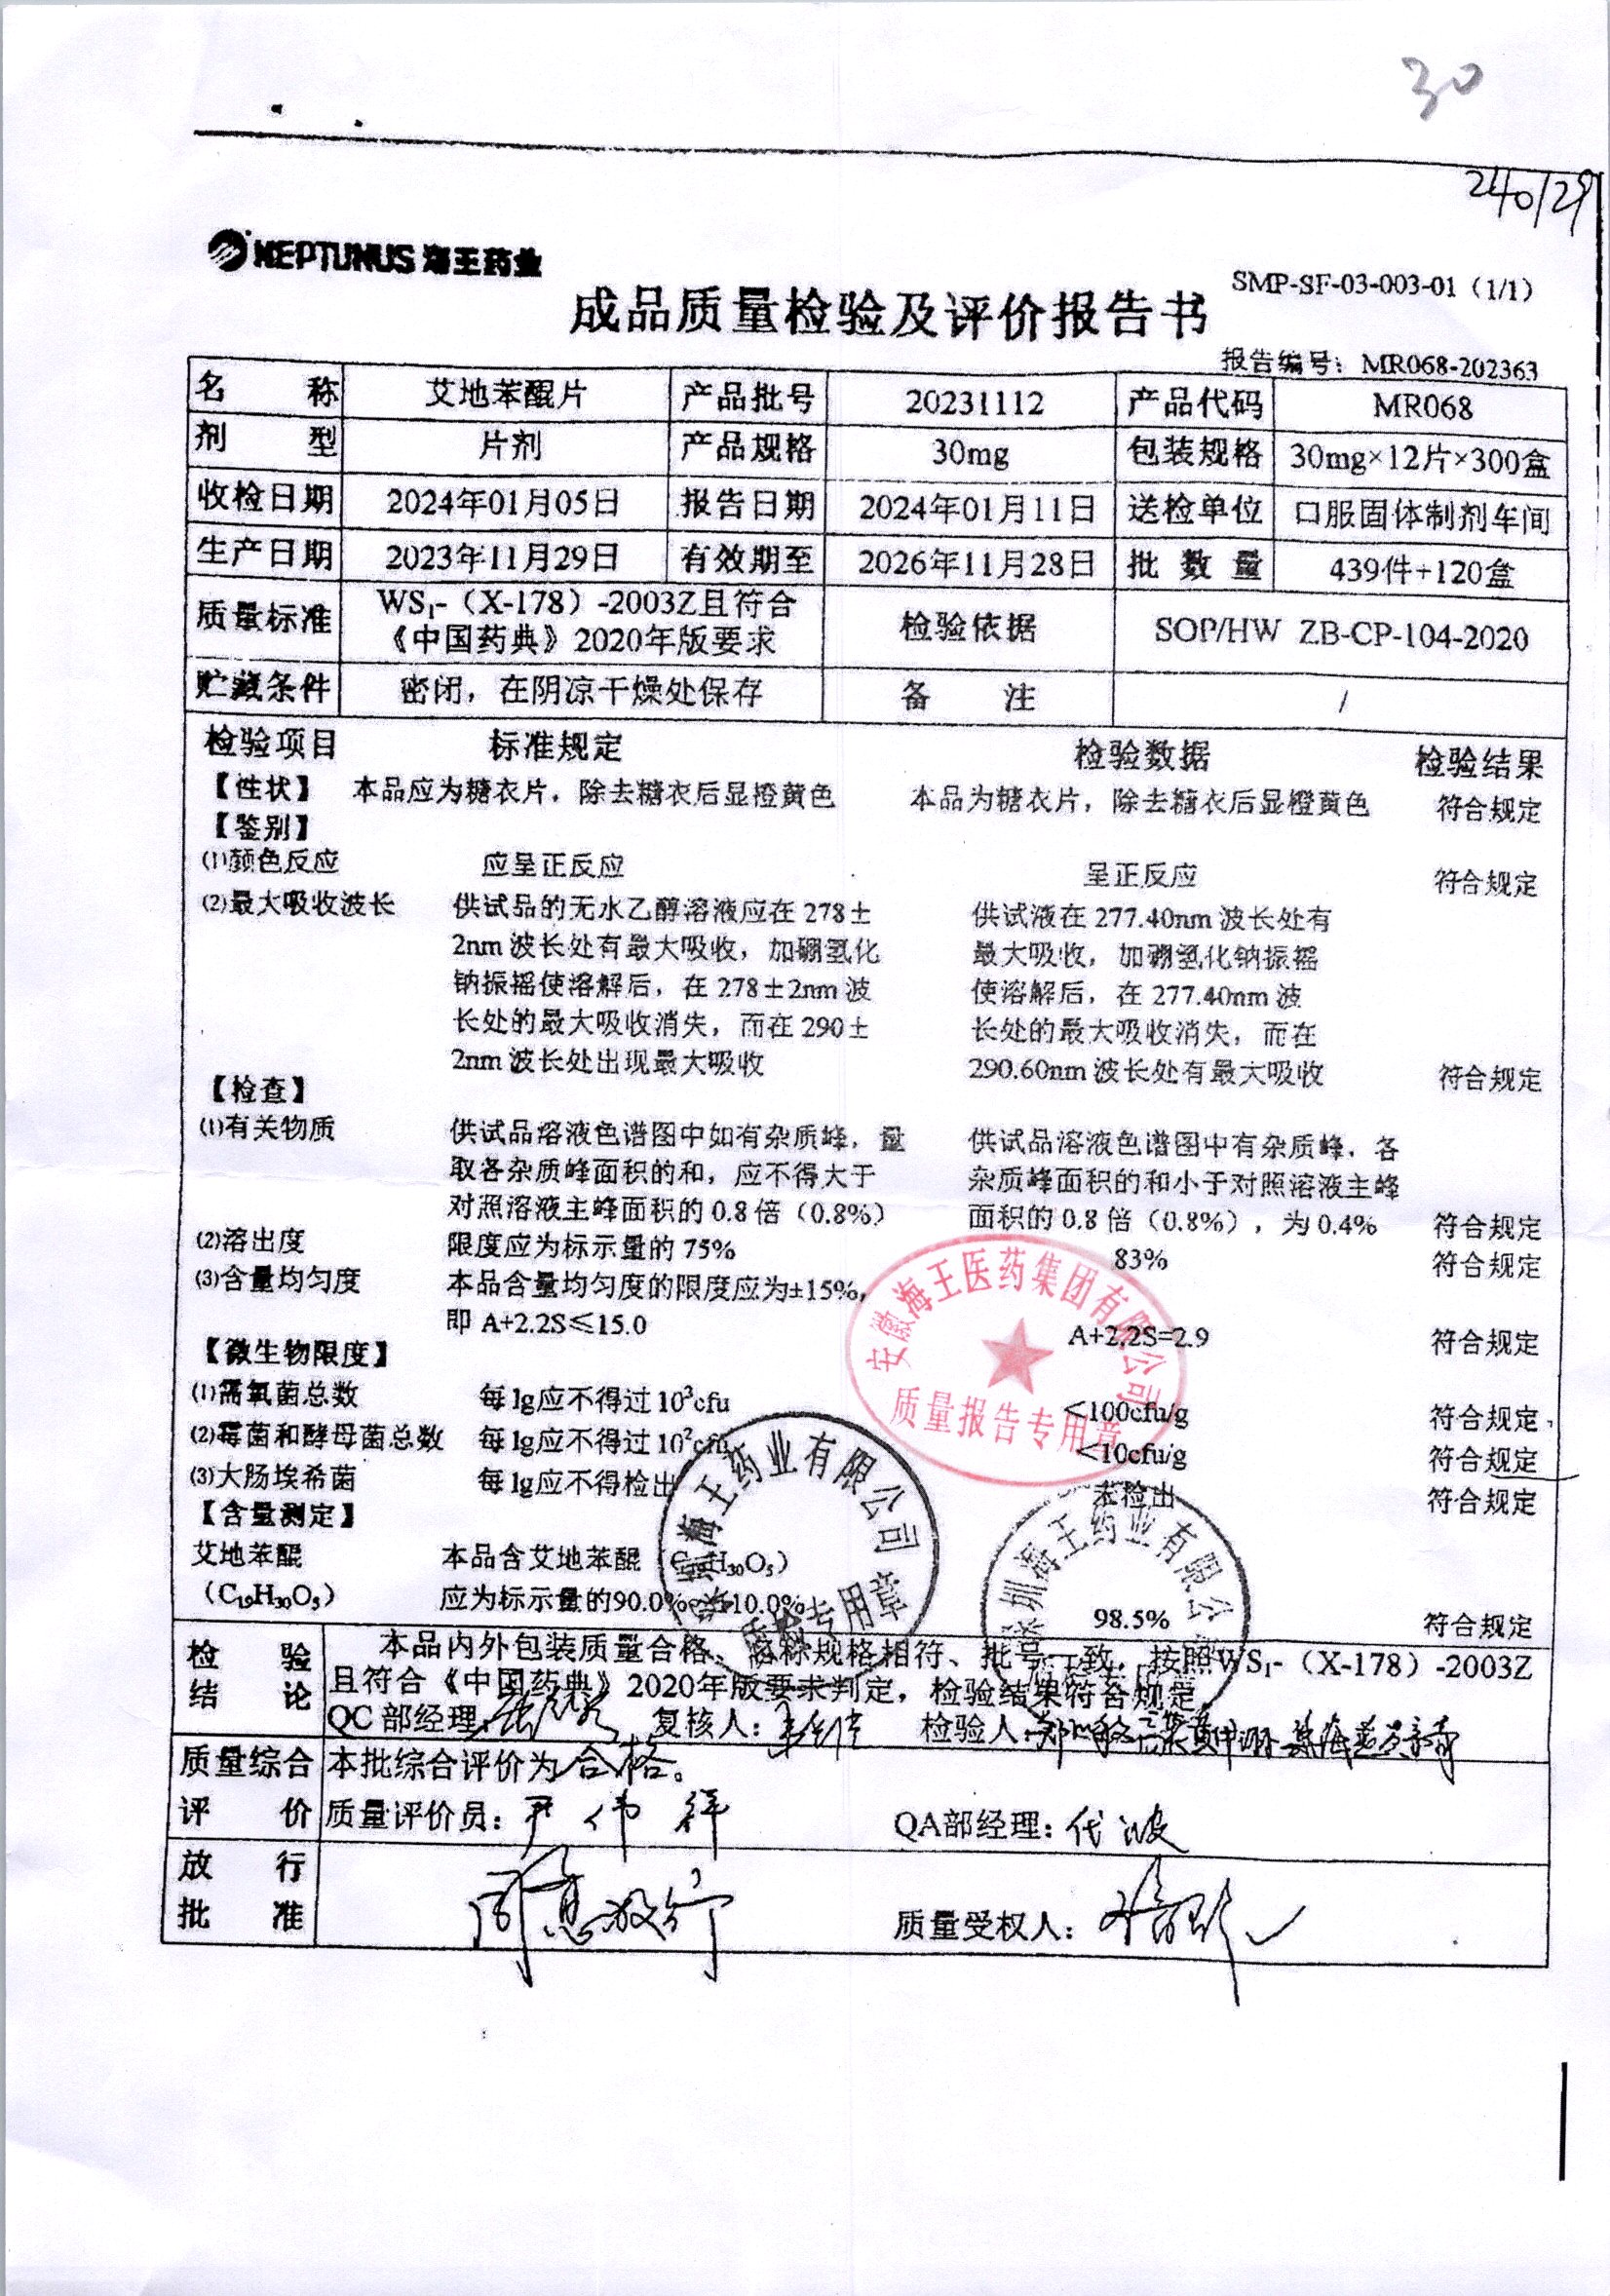 30
240129
NEPTUNUS 海王药业
SMP-SF-03-003-01（1/1）
成品质量检验及评价报告书
报告编号：MR068-202363
名 称 艾地苯醌片 产品批号 20231112 产品代码 MR068
剂 型 片剂 产品规格 30mg 包装规格 30mg×12片×300盒
收检日期 2024年01月05日 报告日期 2024年01月11日 送检单位 口服固体制剂车间
生产日期 2023年11月29日 有效期至 2026年11月28日 批 数 量 439件+120盒
质量标准 WS₁-（X-178）-2003Z且符合 检验依据 SOP/HW ZB-CP-104-2020
《中国药典》2020年版要求
贮藏条件 密闭，在阴凉干燥处保存 备 注 /
检验项目 标准规定 检验数据 检验结果
【性状】 本品应为糖衣片，除去糖衣后显橙黄色 本品为糖衣片，除去糖衣后显橙黄色 符合规定
【鉴别】
⑴颜色反应 应呈正反应 呈正反应 符合规定
⑵最大吸收波长 供试品的无水乙醇溶液应在 278± 供试液在 277.40nm 波长处有
2nm 波长处有最大吸收，加硼氢化 最大吸收，加硼氢化钠振摇
钠振摇使溶解后，在 278±2nm 波 使溶解后，在 277.40nm 波
长处的最大吸收消失，而在 290± 长处的最大吸收消失，而在
2nm 波长处出现最大吸收 290.60nm 波长处有最大吸收 符合规定
【检查】
⑴有关物质 供试品溶液色谱图中如有杂质峰，量 供试品溶液色谱图中有杂质峰，各
取各杂质峰面积的和，应不得大于 杂质峰面积的和小于对照溶液主峰
对照溶液主峰面积的 0.8 倍（0.8%） 面积的 0.8 倍（0.8%），为 0.4% 符合规定
⑵溶出度 限度应为标示量的 75% 83% 符合规定
⑶含量均匀度 本品含量均匀度的限度应为±15%，
即 A+2.2S≤15.0 A+2.2S=2.9 符合规定
【微生物限度】
⑴需氧菌总数 每 1g应不得过 10³cfu <100cfu/g 符合规定
⑵霉菌和酵母菌总数 每 1g应不得过 10²cfu <10cfu/g 符合规定
⑶大肠埃希菌 每 1g应不得检出 未检出 符合规定
【含量测定】
艾地苯醌 本品含艾地苯醌（C H₃₀O₅）
（C₁₉H₃₀O₅） 应为标示量的90.0%~110.0% 98.5% 符合规定
安徽海王医药集团有限公司
质量报告专用章
深圳海王药业有限公司
质检专用章
深圳海王药业有限公
检 验 本品内外包装质量合格、名称规格相符、批号一致，按照WS₁-（X-178）-2003Z
结 论 且符合《中国药典》2020年版要求判定，检验结果符合规定。
QC 部经理： 复核人： 检验人：
质量综合 本批综合评价为合格。
评 价 质量评价员：尹伟祥 QA部经理：代波
放 行 同意放行
批 准 质量受权人：